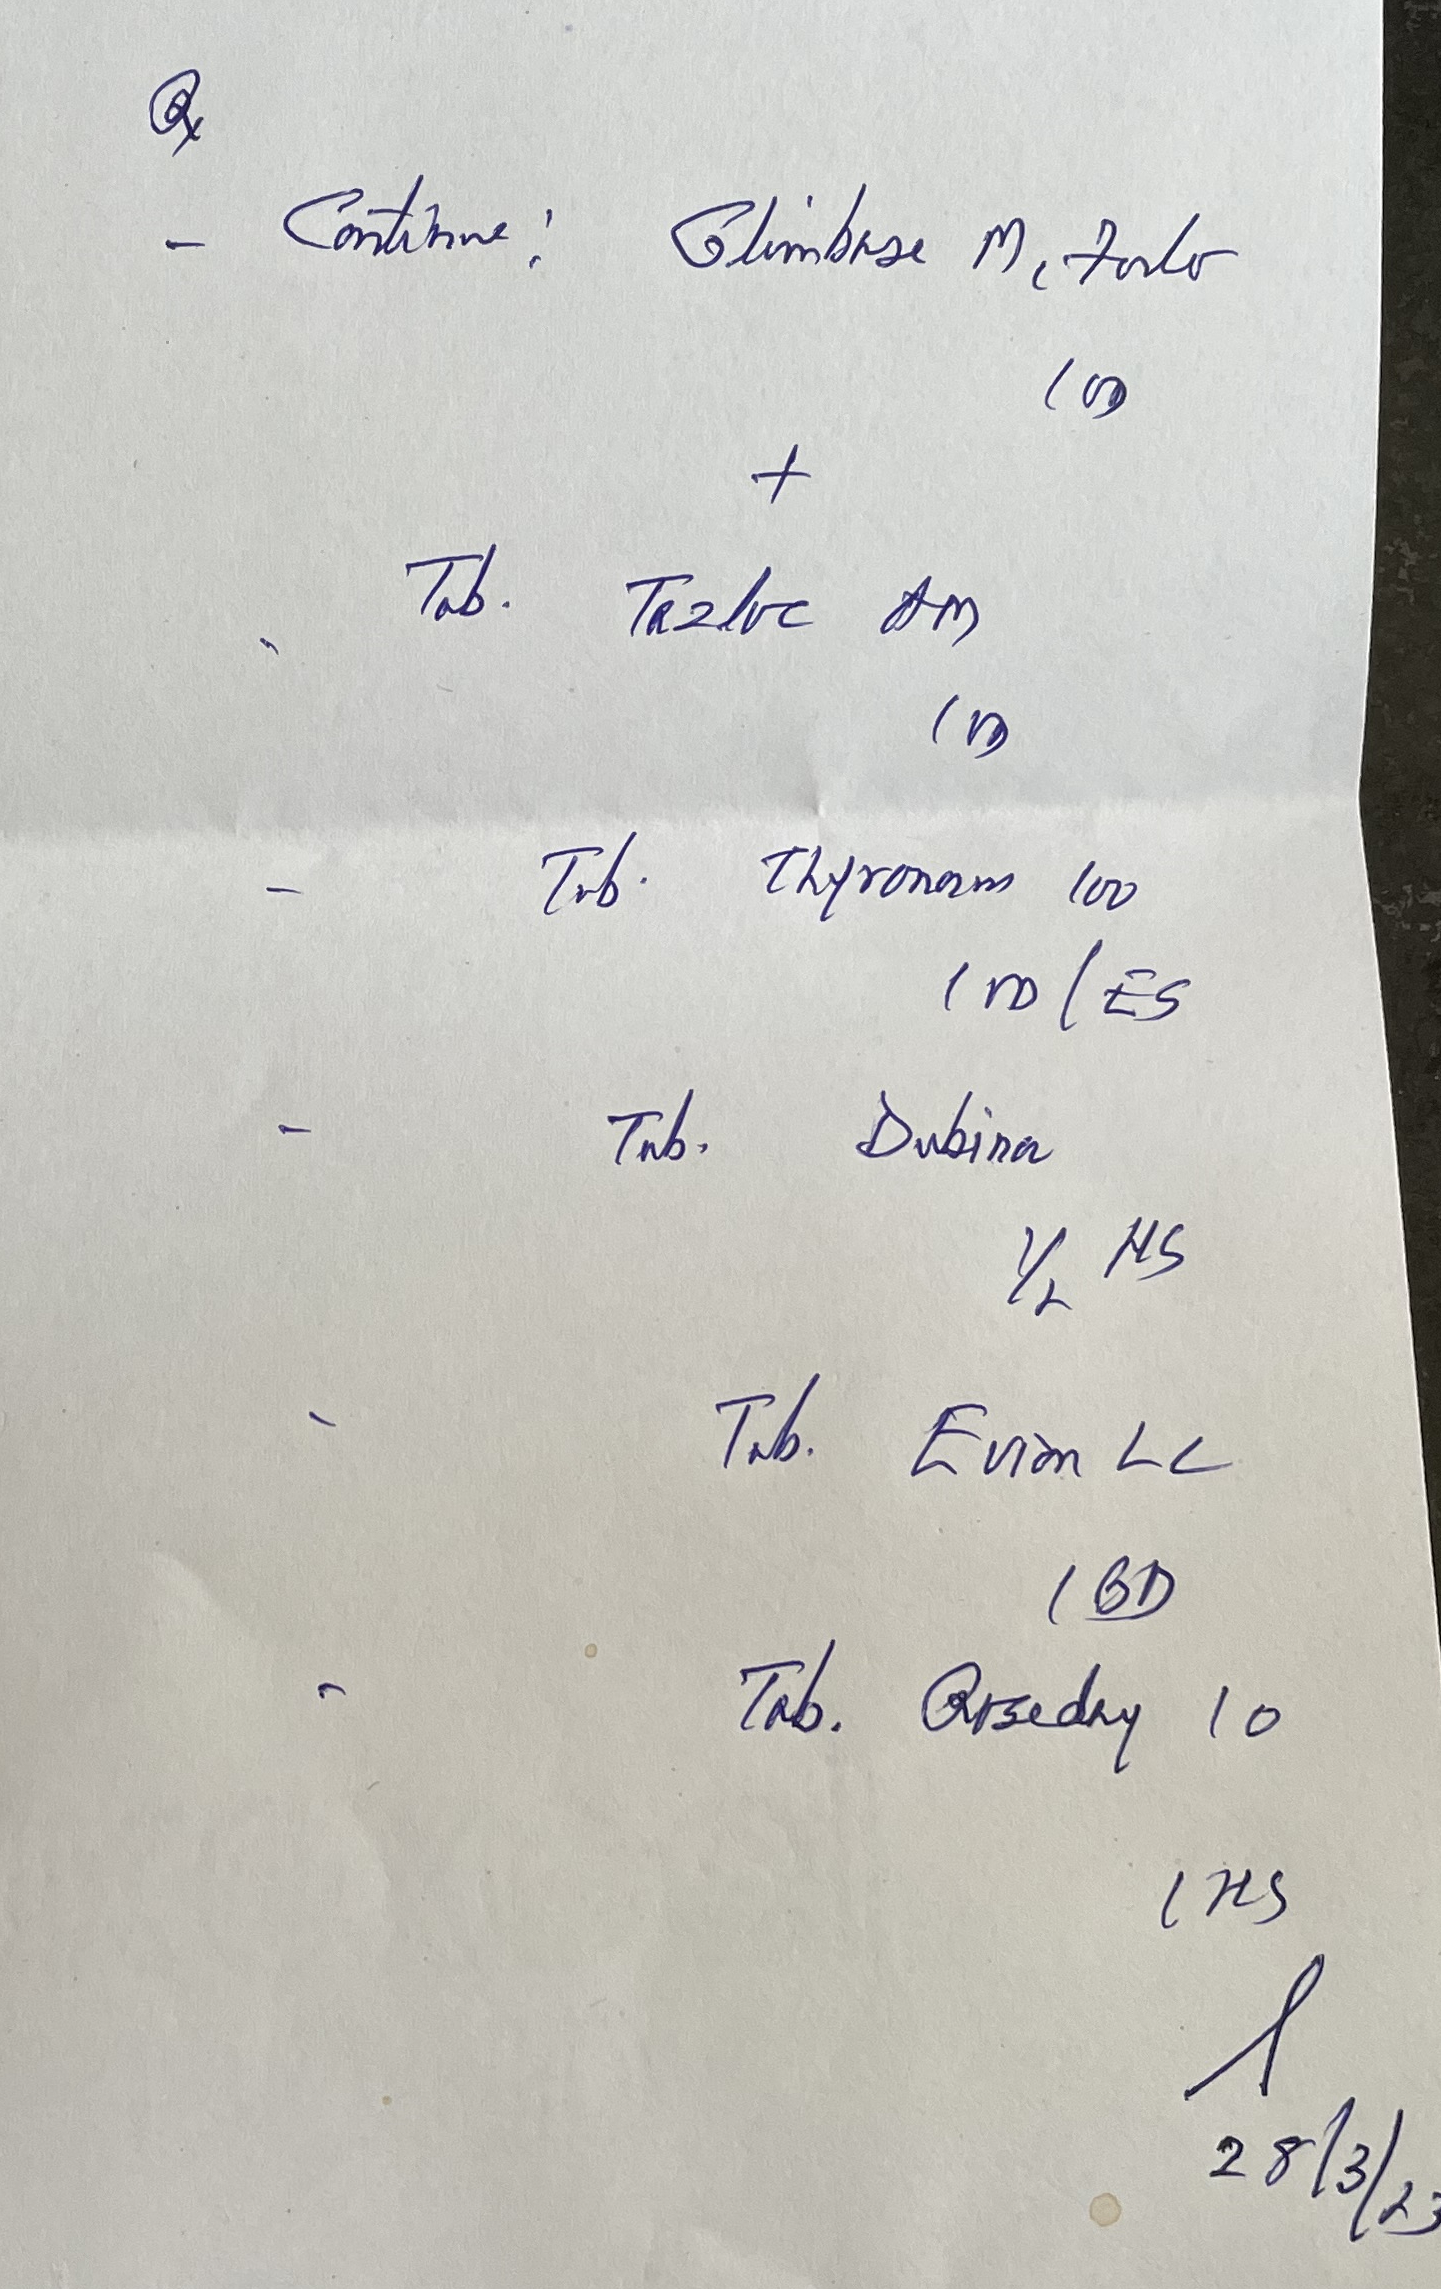 Rx
- Continue: Glimbose M1 Forte
1 OD
+
- Tab. Tazloc AM
1 OD
- Tab. Thyronorm 100
1 OD / ES
- Tab. Dubinor
1/2 HS
- Tab. Evion LC
1 BD
- Tab. Roseday 10
1 HS
28/3/23